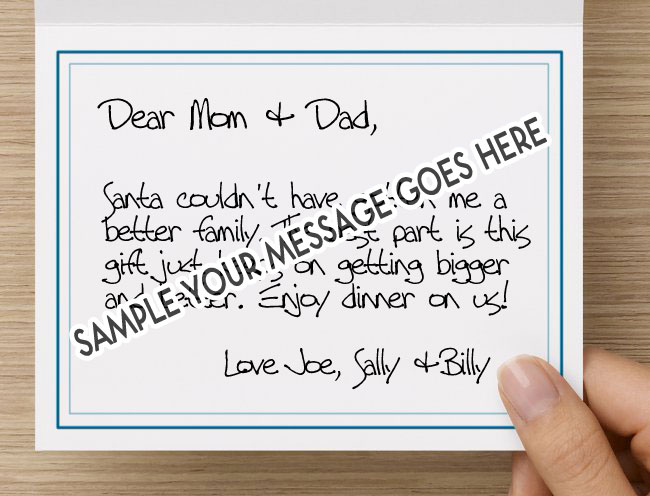 Dear Mom & Dad,
Santa couldn't have me a
better family. part is this
gift just on getting bigger
and Enjoy dinner on us!
Love Joe, Sally & Billy
SAMPLE YOUR MESSAGE GOES HERE